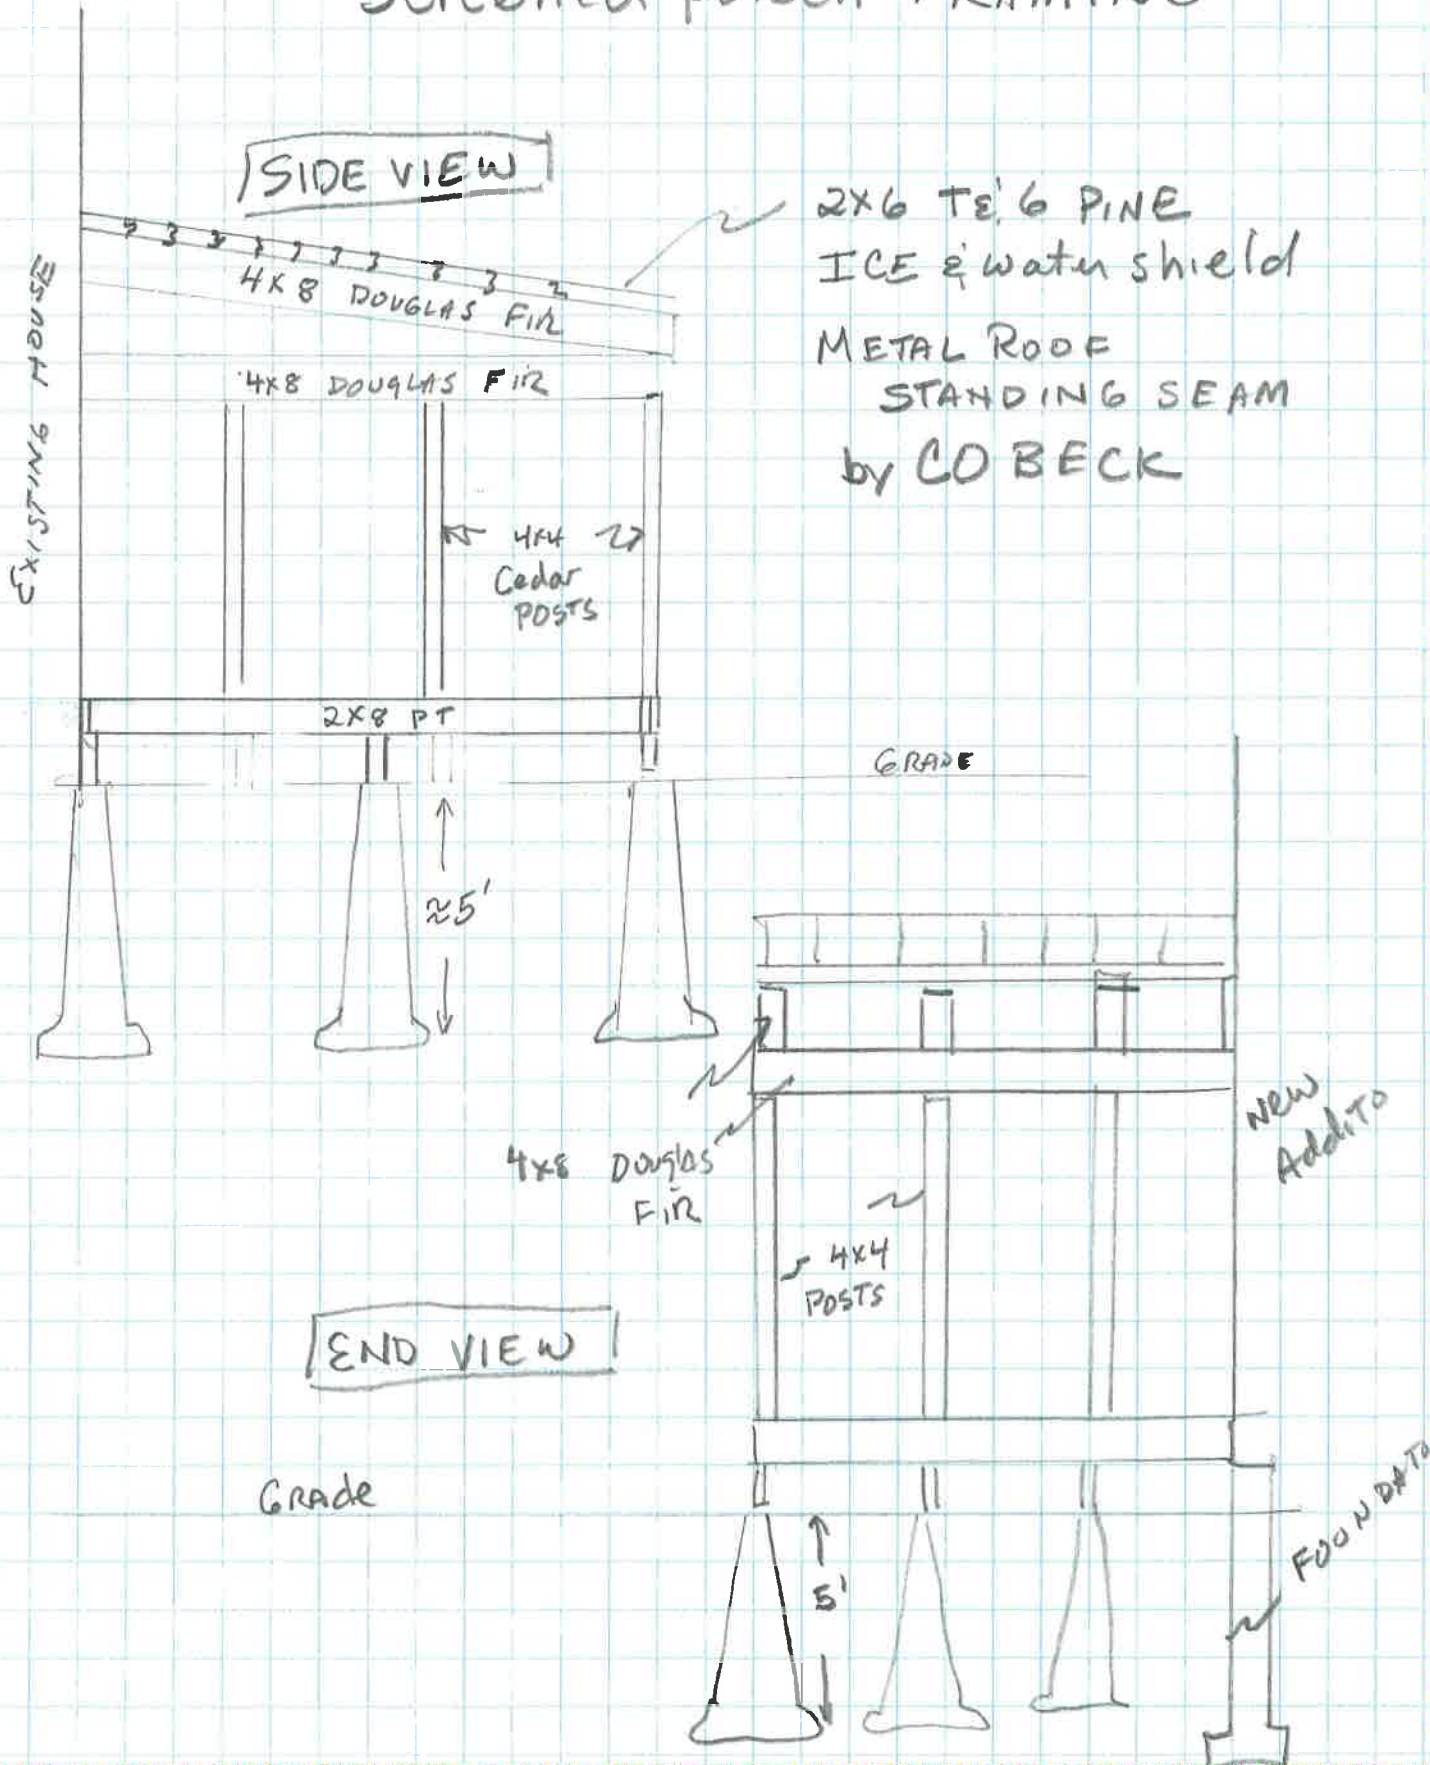 Screened porch FRAMING
SIDE VIEW
2X6 T&G PINE
ICE & water shield
METAL ROOF
STANDING SEAM
by CO BECK
EXISTING HOUSE
4X8 DOUGLAS FIR
4X8 DOUGLAS FIR
4X4
Cedar
POSTS
2X8 PT
GRADE
≈5'
4x8 Douglas
FIR
4X4
POSTS
New
Addito
END VIEW
GRAde
5'
FOUNDATO